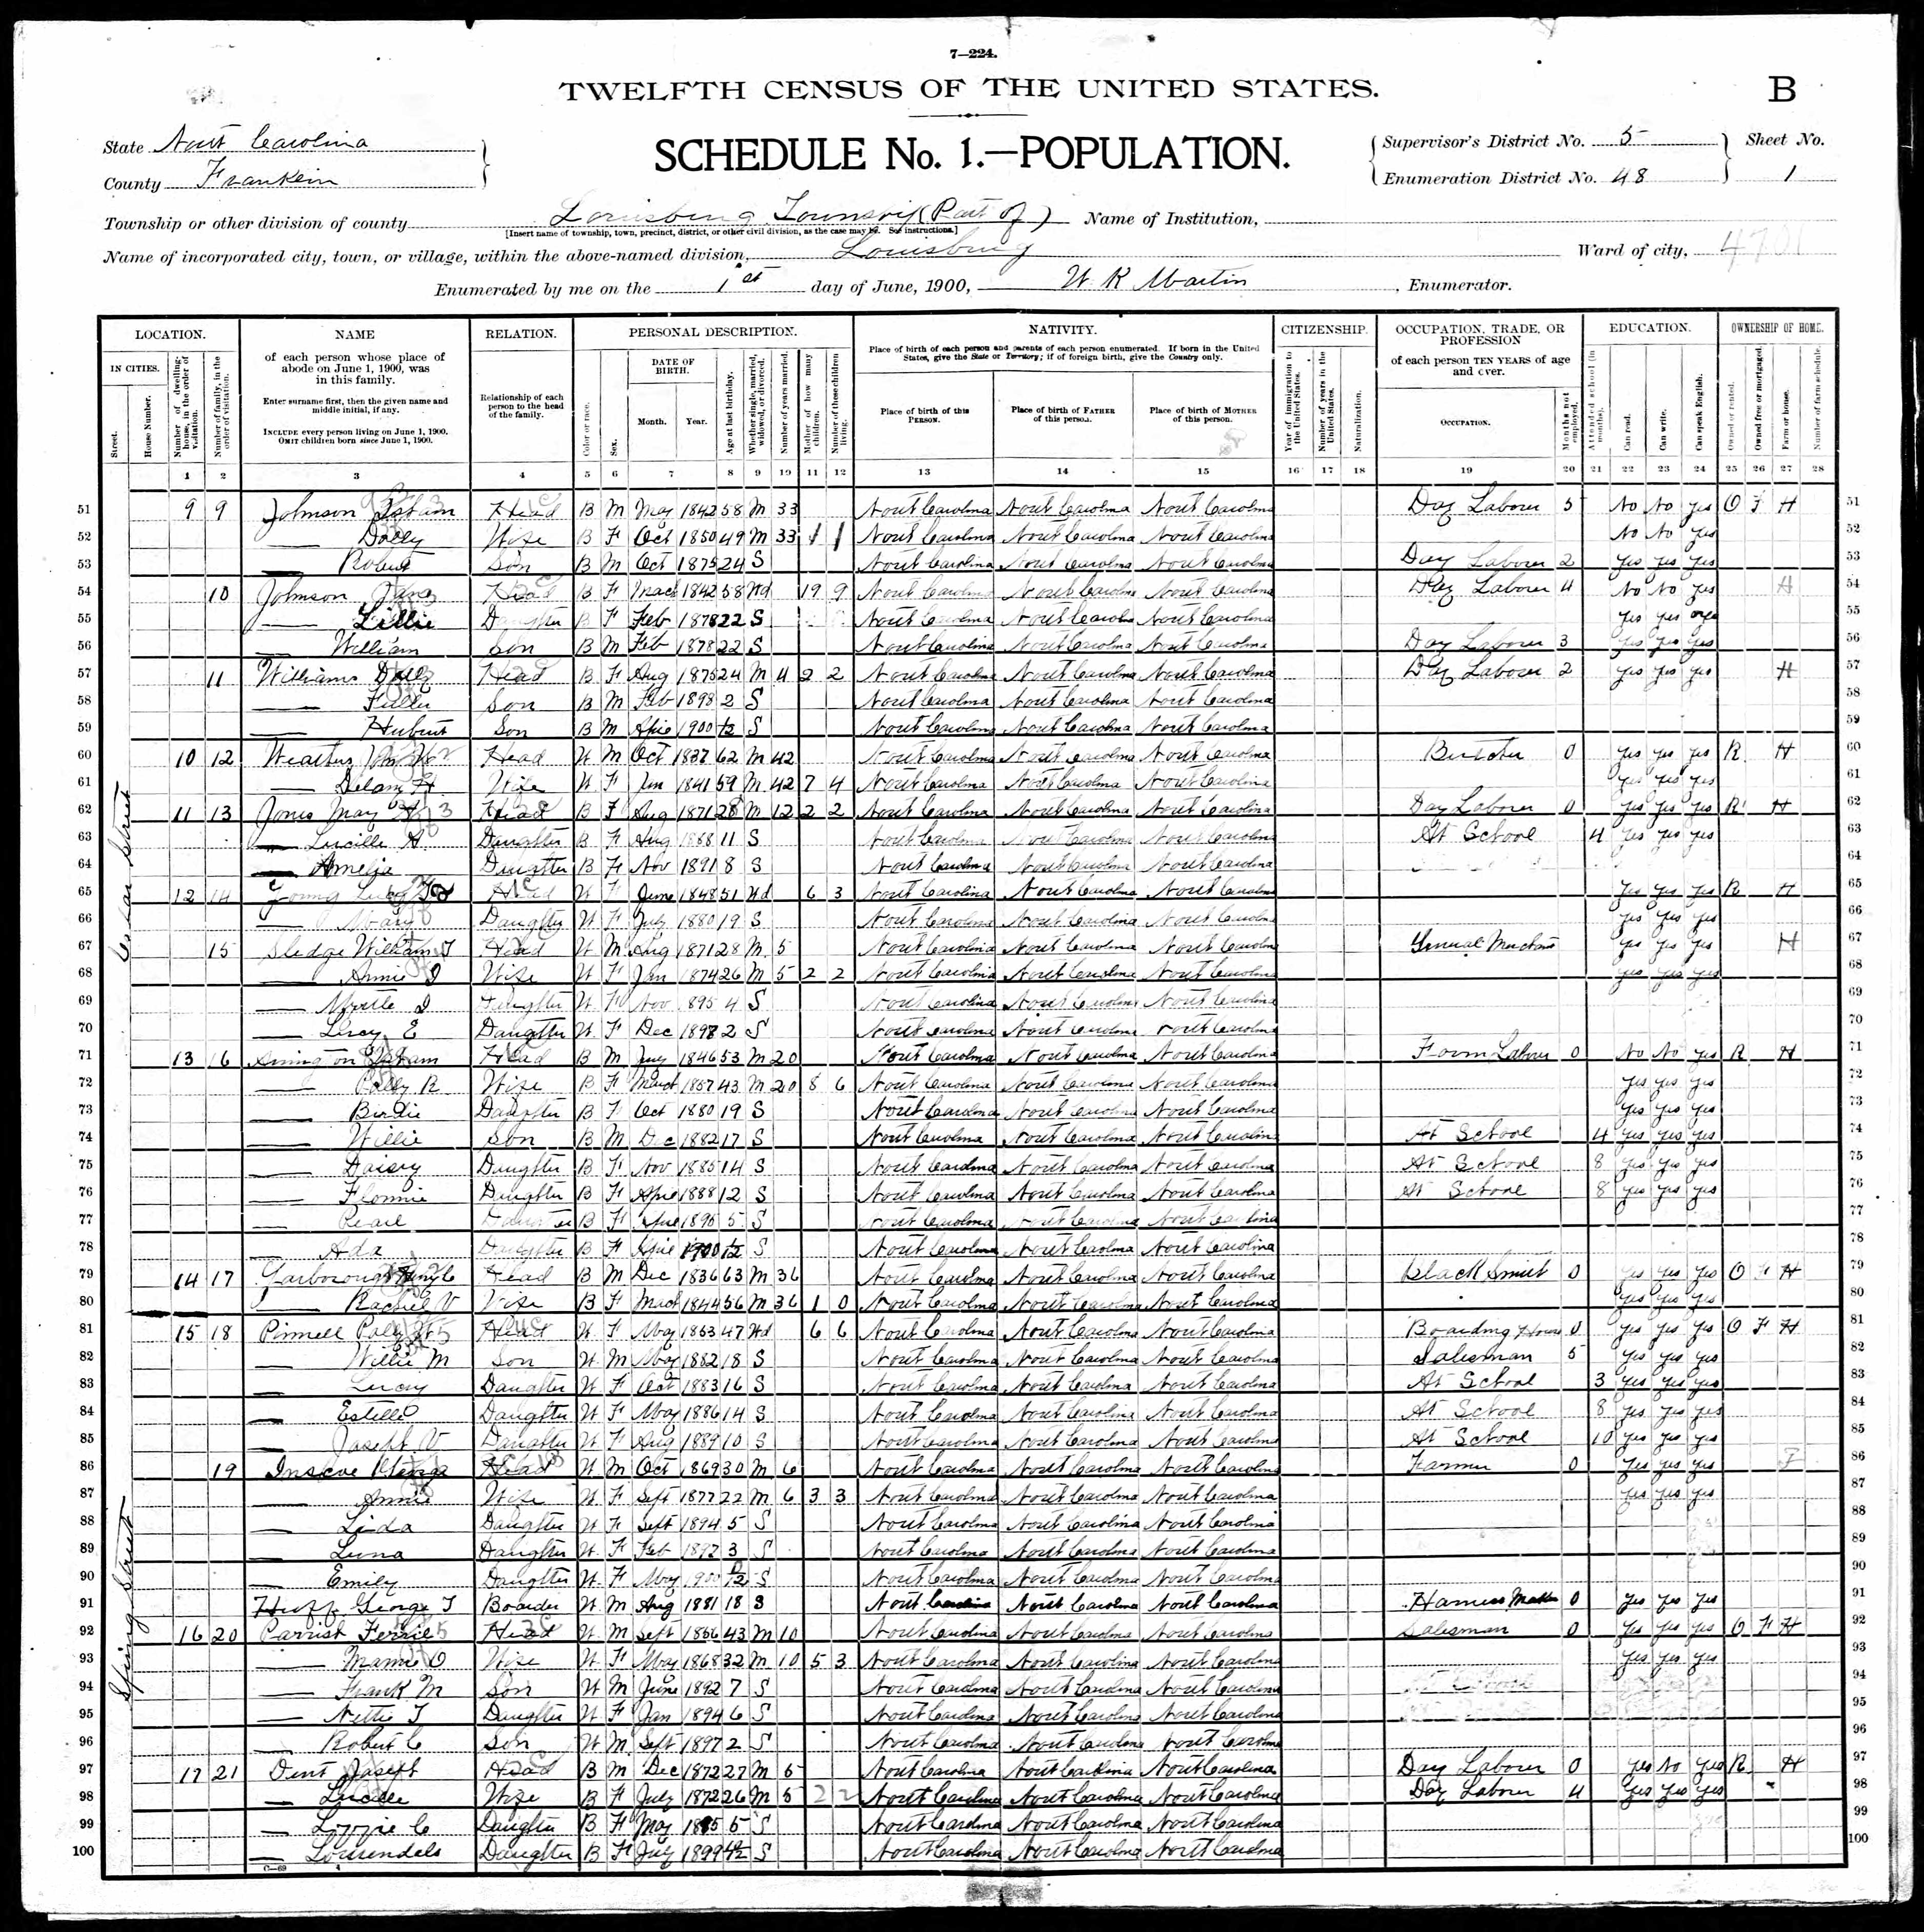 7—224.
TWELFTH CENSUS OF THE UNITED STATES.
B
SCHEDULE No. 1.—POPULATION.
State North Carolina
County Franklin
Supervisor's District No. 5
Enumeration District No. 48
Sheet No.
1
Township or other division of county Louisburg Township (Part of) Name of Institution,
[Insert name of township, town, precinct, district, or other civil division, as the case may be. See instructions.]
Name of incorporated city, town, or village, within the above-named division, Louisburg Ward of city,
Enumerated by me on the 1st day of June, 1900, W. K Martin, Enumerator.
LOCATION. NAME RELATION. PERSONAL DESCRIPTION. NATIVITY. CITIZENSHIP. OCCUPATION, TRADE, OR PROFESSION EDUCATION. OWNERSHIP OF HOME.
IN CITIES.
Street.
House Number.
Number of dwelling-house, in the order of visitation.
Number of family, in the order of visitation.
of each person whose place of abode on June 1, 1900, was in this family.
Enter surname first, then the given name and middle initial, if any.
INCLUDE every person living on June 1, 1900.
OMIT children born since June 1, 1900.
Relationship of each person to the head of the family.
Color or race.
Sex.
DATE OF BIRTH.
Month. Year.
Age at last birthday.
Whether single, married, widowed, or divorced.
Number of years married.
Mother of how many children.
Number of these children living.
Place of birth of each person and parents of each person enumerated. If born in the United States, give the State or Territory; if of foreign birth, give the Country only.
Place of birth of this PERSON.
Place of birth of FATHER of this person.
Place of birth of MOTHER of this person.
Year of immigration to the United States.
Number of years in the United States.
Naturalization.
of each person TEN YEARS of age and over.
OCCUPATION.
Months not employed.
Attended school (in months).
Can read.
Can write.
Can speak English.
Owned or rented.
Owned free or mortgaged.
Farm or house.
Number of farm schedule.
1 2 3 4 5 6 7 8 9 10 11 12 13 14 15 16 17 18 19 20 21 22 23 24 25 26 27 28
51 9 9 Johnson Isham Head B M May 1842 58 M 33 North Carolina North Carolina North Carolina Day Laborer 5 No No yes O F H 51
52 — Dolly Wife B F Oct 1850 49 M 33 1 1 North Carolina North Carolina North Carolina No No yes 52
53 — Robert Son B M Oct 1875 24 S North Carolina North Carolina North Carolina Day Laborer 2 yes yes yes 53
54 10 Johnson Jane Head B F March 1842 58 Wd 19 9 North Carolina North Carolina North Carolina Day Laborer 4 No No yes H 54
55 — Lillie Daughter B F Feb 1878 22 S North Carolina North Carolina North Carolina yes yes yes 55
56 — William Son B M Feb 1878 22 S North Carolina North Carolina North Carolina Day Laborer 3 yes yes yes 56
57 11 Williams Dolly Head B F Aug 1875 24 M 4 2 2 North Carolina North Carolina North Carolina Day Laborer 2 yes yes yes H 57
58 — Fuller Son B M Feb 1898 2 S North Carolina North Carolina North Carolina 58
59 — Hubert Son B M April 1900 1/12 S North Carolina North Carolina North Carolina 59
60 10 12 Head W M Oct 1837 62 M 42 North Carolina North Carolina North Carolina Butcher 0 yes yes yes R H 60
61 — Delany H Wife W F Jan 1841 59 M 42 7 4 North Carolina North Carolina North Carolina yes yes yes 61
62 11 13 Jones Mary Head B F Aug 1871 28 M 12 2 2 North Carolina North Carolina North Carolina Day Laborer 0 yes yes yes R H 62
63 — Lucille H. Daughter B F Aug 1888 11 S North Carolina North Carolina North Carolina At School 4 yes yes yes 63
64 — Amelia Daughter B F Nov 1891 8 S North Carolina North Carolina North Carolina 64
65 12 14 Young Lucy Head W F June 1848 51 Wd 6 3 North Carolina North Carolina North Carolina yes yes yes R H 65
66 — Mary Daughter W F July 1880 19 S North Carolina North Carolina North Carolina yes yes yes 66
67 15 Sledge William J Head W M Aug 1871 28 M 5 North Carolina North Carolina North Carolina General Merchant yes yes yes H 67
68 — Annie I Wife W F Jan 1874 26 M 5 2 2 North Carolina North Carolina North Carolina yes yes yes 68
69 — Myrtle I Daughter W F Nov 1895 4 S North Carolina North Carolina North Carolina 69
70 — Leroy E Daughter W F Dec 1897 2 S North Carolina North Carolina North Carolina 70
71 13 16 Head B M July 1846 53 M 20 North Carolina North Carolina North Carolina Farm Laborer 0 No No yes R H 71
72 — Polly R Wife B F March 1857 43 M 20 8 6 North Carolina North Carolina North Carolina yes yes yes 72
73 — Birdie Daughter B F Oct 1880 19 S North Carolina North Carolina North Carolina yes yes yes 73
74 — Willie Son B M Dec 1882 17 S North Carolina North Carolina North Carolina At School 4 yes yes yes 74
75 — Daisey Daughter B F Nov 1885 14 S North Carolina North Carolina North Carolina At School 8 yes yes yes 75
76 — Flonnie Daughter B F April 1888 12 S North Carolina North Carolina North Carolina At School 8 yes yes yes 76
77 — Pearl Daughter B F April 1895 5 S North Carolina North Carolina North Carolina 77
78 — Ada Daughter B F April 1900 1/12 S North Carolina North Carolina North Carolina 78
79 14 17 Yarborough Head B M Dec 1836 63 M 36 North Carolina North Carolina North Carolina Black Smith 0 yes yes yes O F H 79
80 — Rachel V Wife B F March 1844 56 M 36 1 0 North Carolina North Carolina North Carolina yes yes yes 80
81 15 18 Pinnell Head W F May 1853 47 Wd 6 6 North Carolina North Carolina North Carolina Boarding House 0 yes yes yes O F H 81
82 — Willie M Son W M May 1882 18 S North Carolina North Carolina North Carolina Salesman 5 yes yes yes 82
83 — Leroy Daughter W F Oct 1883 16 S North Carolina North Carolina North Carolina At School 3 yes yes yes 83
84 — Estelle Daughter W F May 1886 14 S North Carolina North Carolina North Carolina At School 8 yes yes yes 84
85 — Joseph V Daughter W F Aug 1889 10 S North Carolina North Carolina North Carolina At School 10 yes yes yes 85
86 19 Inscoe George Head W M Oct 1869 30 M 6 North Carolina North Carolina North Carolina Farmer 0 yes yes yes F 86
87 — Annie Wife W F Sept 1877 22 M 6 3 3 North Carolina North Carolina North Carolina yes yes yes 87
88 — Lida Daughter W F Sept 1894 5 S North Carolina North Carolina North Carolina 88
89 — Luna Daughter W F Feb 1897 3 S North Carolina North Carolina North Carolina 89
90 — Emily Daughter W F May 1900 0/12 S North Carolina North Carolina North Carolina 90
91 Huff George T Boarder W M Aug 1881 18 S North Carolina North Carolina North Carolina Harness Maker 0 yes yes yes 91
92 16 20 Parrish Head W M Sept 1856 43 M 10 North Carolina North Carolina North Carolina Salesman 0 yes yes yes O F H 92
93 — Mamie O Wife W F May 1868 32 M 10 5 3 North Carolina North Carolina North Carolina yes yes yes 93
94 — Frank M Son W M June 1892 7 S North Carolina North Carolina North Carolina 94
95 — Nettie T Daughter W F Jan 1894 6 S North Carolina North Carolina North Carolina 95
96 — Robert C Son W M Sept 1897 2 S North Carolina North Carolina North Carolina 96
97 17 21 Dent Joseph Head B M Dec 1872 27 M 5 North Carolina North Carolina North Carolina Day Laborer 0 yes No yes R H 97
98 — Lucille Wife B F July 1872 26 M 5 2 2 North Carolina North Carolina North Carolina Day Laborer 4 yes yes yes 98
99 — Lizzie C Daughter B F May 1895 5 S North Carolina North Carolina North Carolina 99
100 — Lousendels Daughter B F July 1899 S North Carolina North Carolina North Carolina 100
Spring Street
C—69